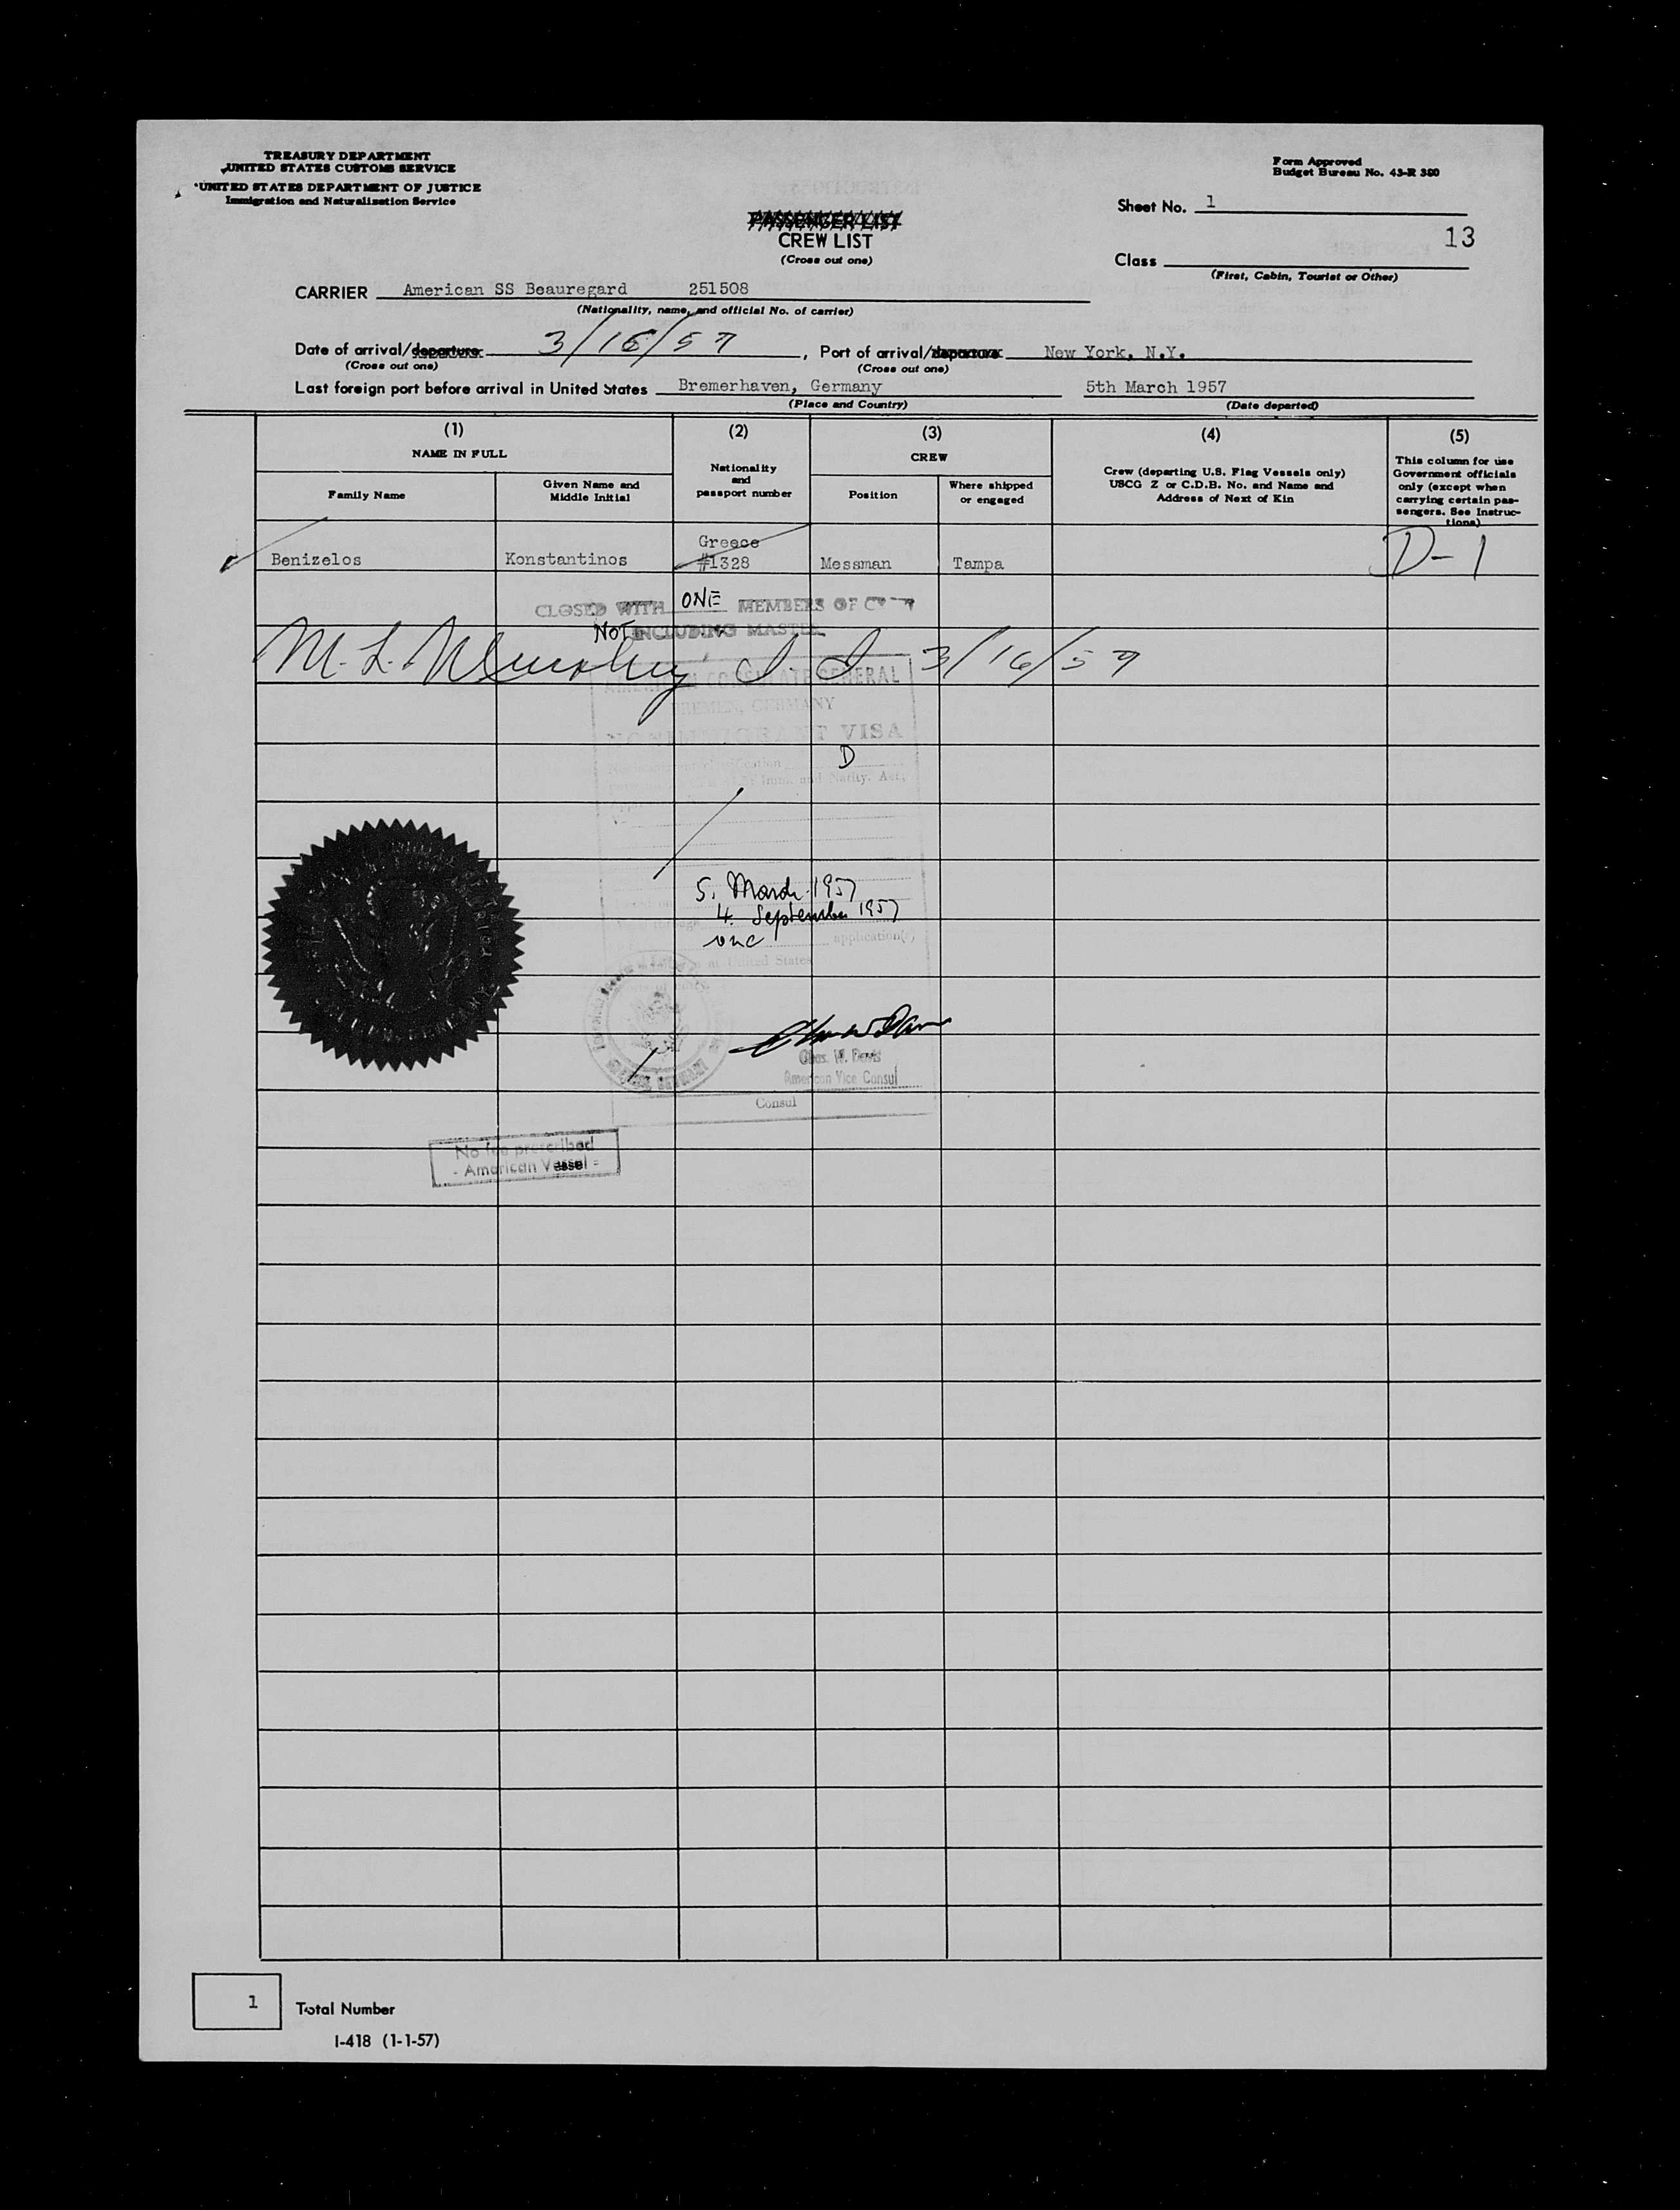 TREASURY DEPARTMENT
UNITED STATES CUSTOMS SERVICE
UNITED STATES DEPARTMENT OF JUSTICE
Immigration and Naturalization Service
Form Approved
Budget Bureau No. 43-R 380
Sheet No. 1
13
PASSENGER LIST
CREW LIST
(Cross out one)
Class
(First, Cabin, Tourist or Other)
CARRIER American SS Beauregard 251508
(Nationality, name, and official No. of carrier)
Date of arrival/departure 3/16/57, Port of arrival/departure New York, N.Y.
(Cross out one) (Cross out one)
Last foreign port before arrival in United States Bremerhaven, Germany 5th March 1957
(Place and Country) (Date departed)
(1) (2) (3) (4) (5)
NAME IN FULL
Family Name
Given Name and
Middle Initial
Nationality
and
passport number
CREW
Position
Where shipped
or engaged
Crew (departing U.S. Flag Vessels only)
USCG Z or C.D.B. No. and Name and
Address of Next of Kin
This column for use
Government officials
only (except when
carrying certain pas-
sengers. See Instruc-
tions)
Greece
Benizelos Konstantinos #1328 Messman Tampa D-1
CLOSED WITH ONE MEMBERS OF
NOT INCLUDING MASTER
M. L. Murphy 3/16/57
AMERICAN CONSULATE GENERAL
BREMEN, GERMANY
NONIMMIGRANT VISA
Nonimmigrant classification D
Imm. and Natlty. Act,
5. March 1957
4. September 1957
one application(s)
at United States
Chas. W. Davis
American Vice Consul
Consul
No fee prescribed
- American Vessel -
1 Total Number
I-418 (1-1-57)